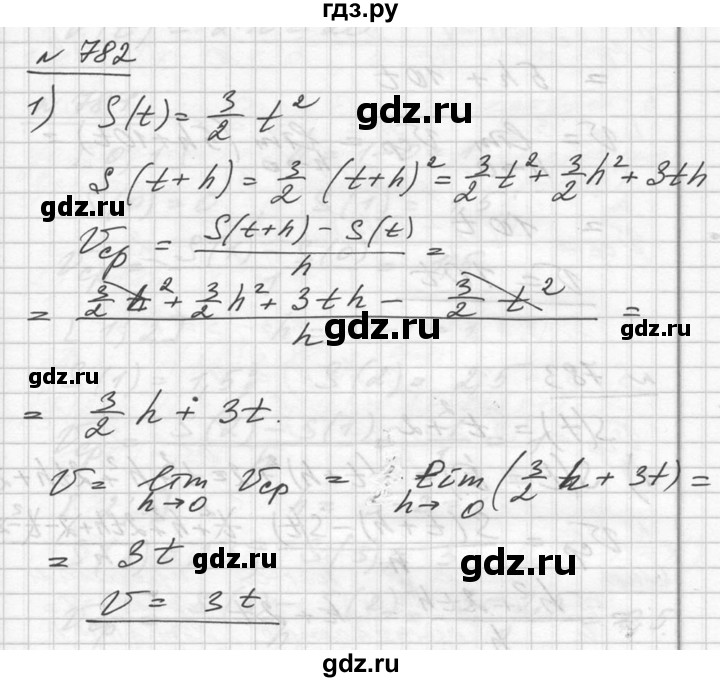 гдз.ру
№ 782
1) S(t) = 3/2 t²
gdz.ru
S(t+h) = 3/2 (t+h)² = 3/2 t² + 3/2 h² + 3th
gdz.ru
Vср = (S(t+h) - S(t))/h =
= (3/2 t² + 3/2 h² + 3th - 3/2 t²)/h =
gdz.ru
gdz.ru
gdz.ru
= 3/2 h + 3t.
V = lim h→0 Vср = lim h→0 (3/2 h + 3t) =
= 3t
gdz.ru
gdz.ru
V = 3t
gdz.ru